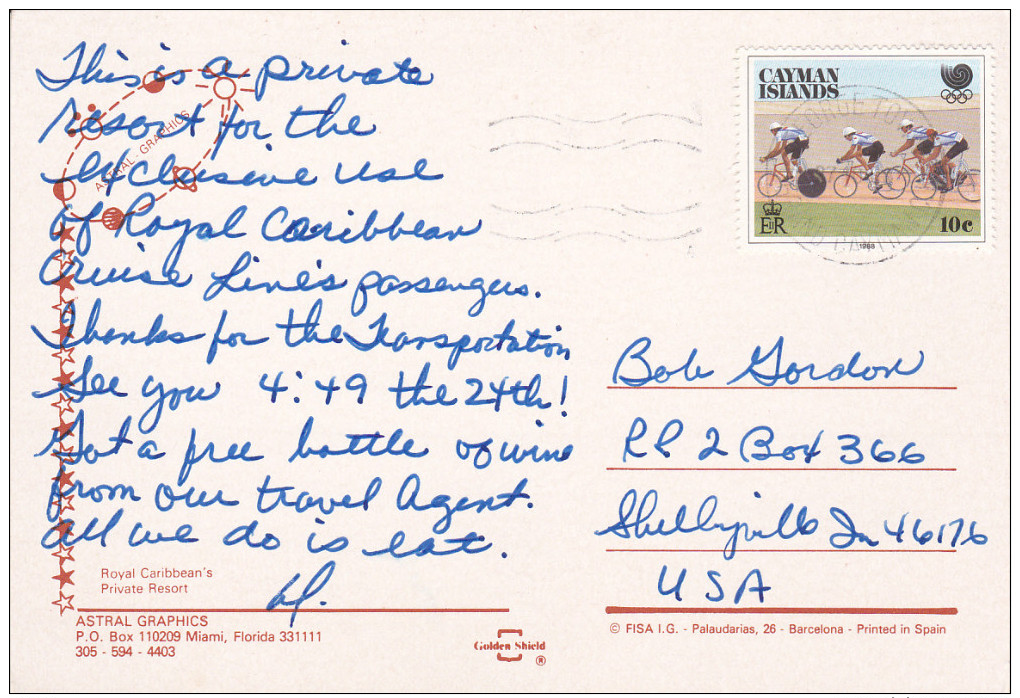 This is a private
Resort for the
Exclusive use
of Royal Caribbean
Cruise Line's passengers.
Thanks for the Transportation
See you 4:49 the 24th!
Got a free bottle of wine
from our travel Agent.
All we do is eat.
ASTRAL-GRAPHICS
Royal Caribbean's
Private Resort
ASTRAL GRAPHICS
P.O. Box 110209 Miami, Florida 331111
305 - 594 - 4403
Golden Shield
®
CAYMAN
ISLANDS
E R
10c
1988
Bob Gordon
RR 2 Box 366
Shelbyville In 46176
USA
© FISA I.G. - Palaudarias, 26 - Barcelona - Printed in Spain